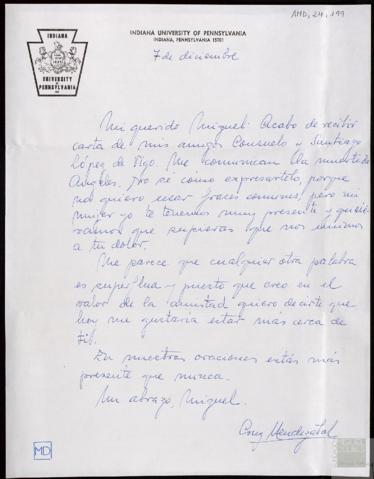 AMD, 24, 199
INDIANA
UNIVERSITY
OF
PENNSYLVANIA
INDIANA UNIVERSITY OF PENNSYLVANIA
INDIANA, PENNSYLVANIA 15701
7 de diciembre
Mi querido Miguel: Acabo de recibir
carta de mis amigos Consuelo y Santiago
López de Vigo. Me comunican la muerte de
Angeles. No sé cómo expresártelo, porque
no quiero usar frases comunes, pero mi
mujer yo te tenemos muy presente y quisié-
ramos que supieras que nos unimos
a tu dolor.
Me parece que cualquier otra palabra
es superflua y puesto que creo en el
valor de la amistad quiero decirte que
hoy me gustaría estar más cerca de
ti.
En nuestras oraciones estás más
presente que nunca.
Un abrazo, Miguel.
Cruz Mendizábal
MD